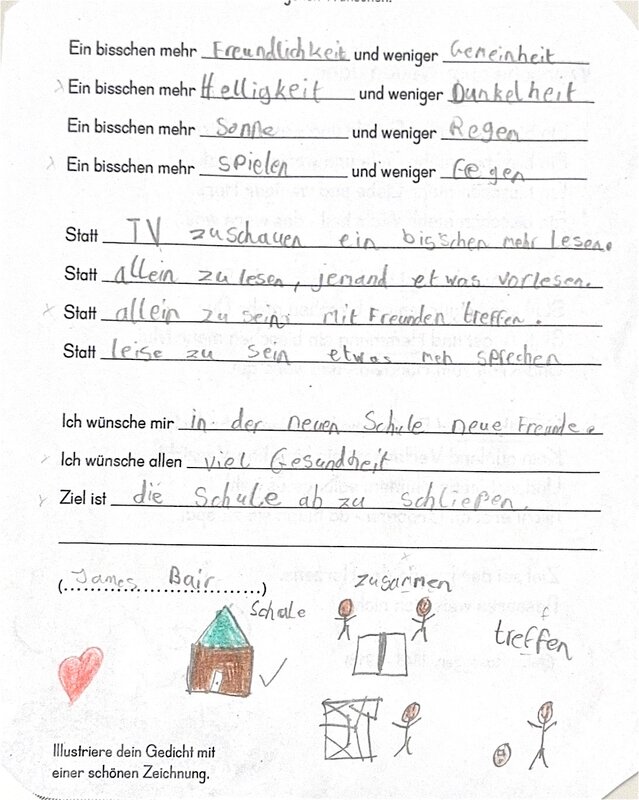 Wünschen.
Ein bisschen mehr Freundlichkeit und weniger Gemeinheit
Ein bisschen mehr Helligkeit und weniger Dunkelheit
Ein bisschen mehr Sonne und weniger Regen
Ein bisschen mehr spielen und weniger Fegen
Statt TV zuschauen ein bisschen mehr lesen.
Statt allein zu lesen, jemand etwas vorlesen.
Statt allein zu sein, mit Freunden treffen.
Statt leise zu sein etwas meh sprechen
Ich wünsche mir in der neuen Schule neue Freunde.
Ich wünsche allen viel Gesundheit
Ziel ist die Schule ab zu schließen.
(James Bair)
zusammen
Schule
treffen
Illustriere dein Gedicht mit
einer schönen Zeichnung.